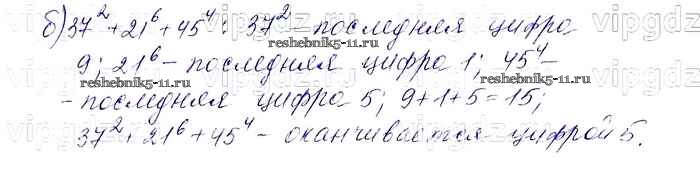 б) 37² + 21⁶ + 45⁴ : 37² - последняя цифра
9; 21⁶ - последняя цифра 1; 45⁴ -
- последняя цифра 5; 9+1+5=15;
37² + 21⁶ + 45⁴ - оканчивается цифрой 5.
reshebnik5-11.ru
reshebnik5-11.ru
reshebnik5-11.ru
vipgdz
vipgdz
vipgdz